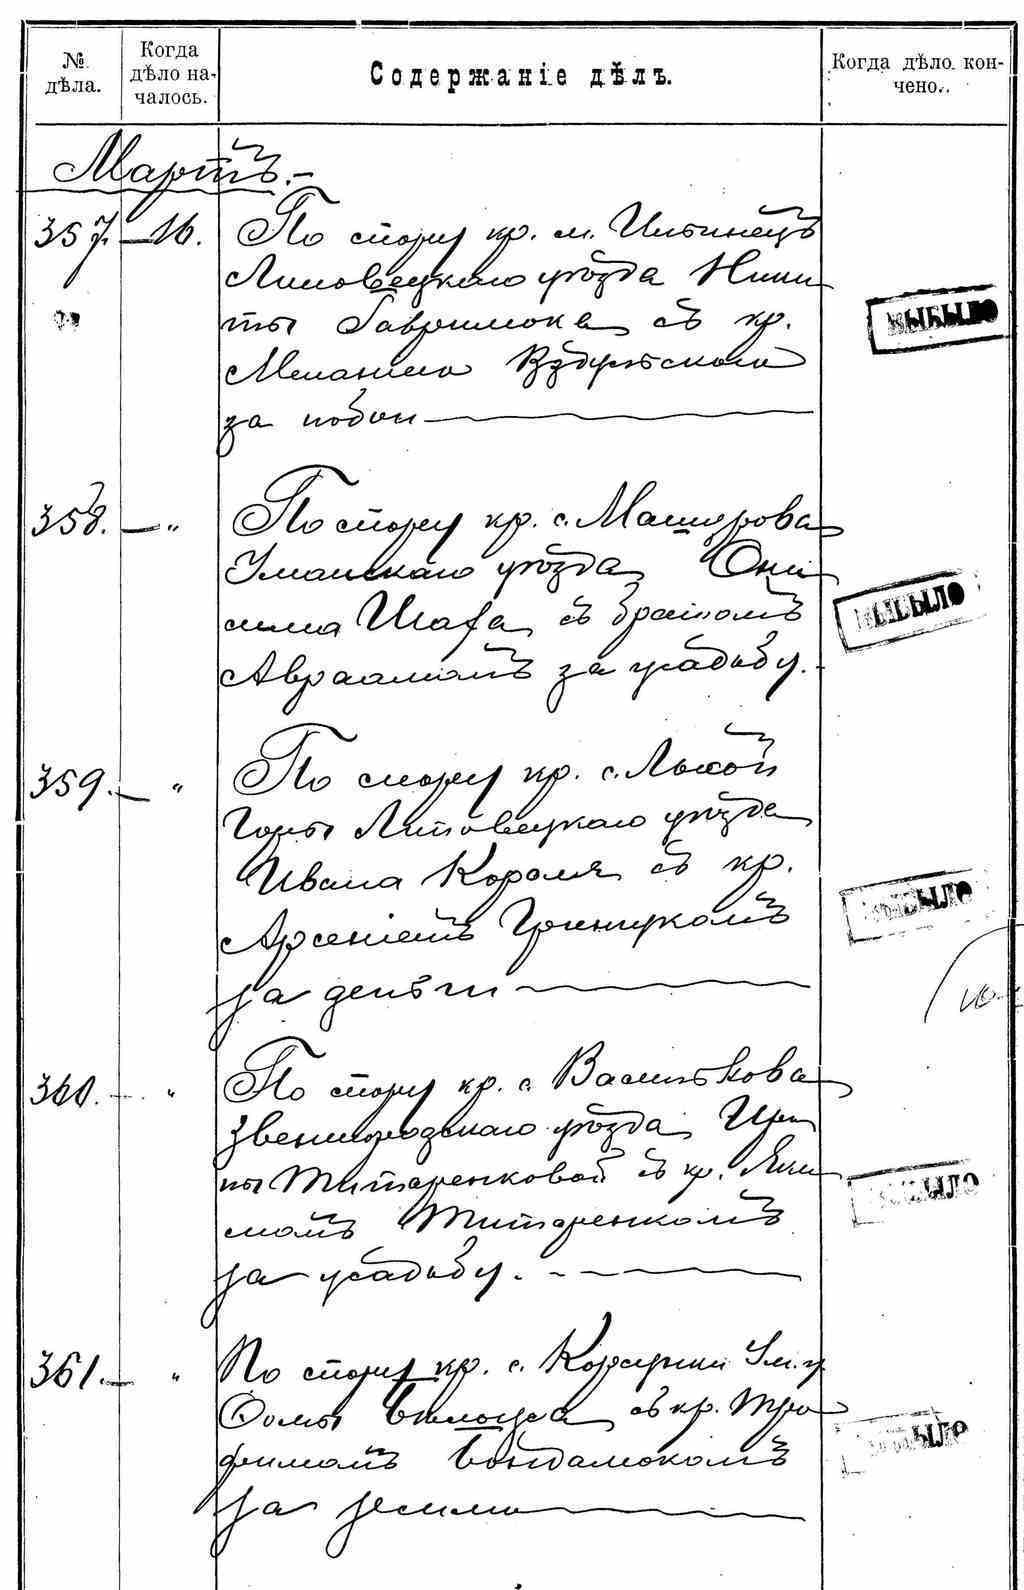 № дѣла.
Когда дѣло началось.
Содержаніе дѣлъ.
Когда дѣло кончено.
Мартъ.
357. 16. По спору кр. м. Ильинецъ
Липовецкаго уѣзда Ники
ты Гаврилюка съ кр.
за побои
ВЫБЫЛО
358. — „ По спору кр. с. Машурова
Уманскаго уѣзда Они
сима Шафа съ братомъ
Авраамомъ за усадьбу.
ВЫБЫЛО
359. — „ По спору кр. с. Лысой
Горы Липовецкаго уѣзда
Ивана Короля съ кр.
Арсеніемъ Грицукомъ
за деньги
ВЫБЫЛО
360. — „ По спору кр. с. Василькова
Звенигородскаго уѣзда Ири
ны Титаренковой съ кр. Яки
момъ Титаренкомъ
за усадьбу.
ВЫБЫЛО
361. — „ По спору кр. с. Ум. у
Ѳомы съ кр. Тро
фимомъ
за землю
ВЫБЫЛО